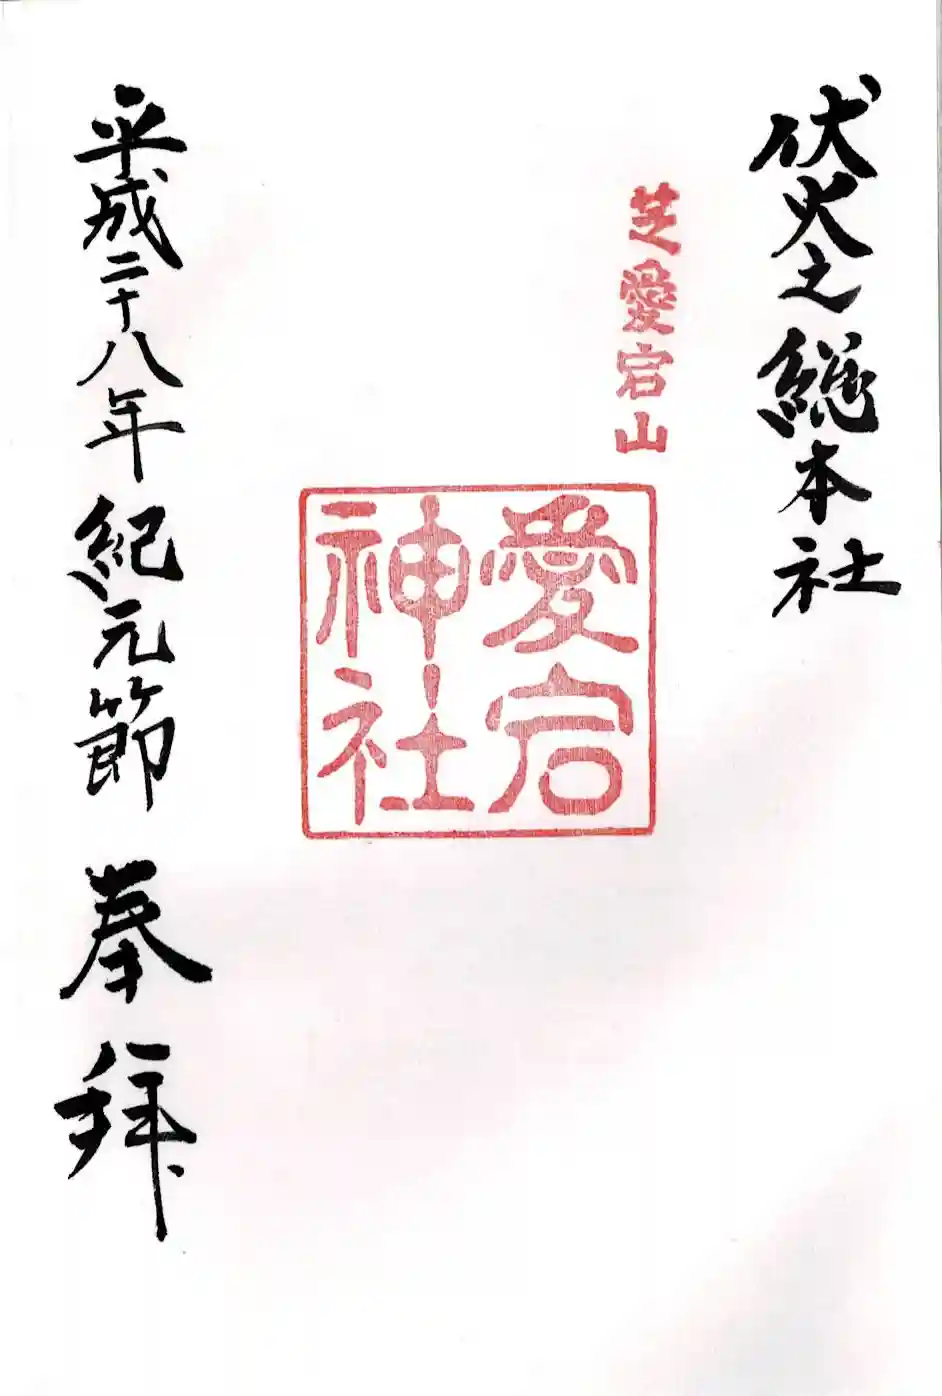 伏火之総本社
芝愛宕山
愛宕
神社
平成二十八年紀元節 奉拝